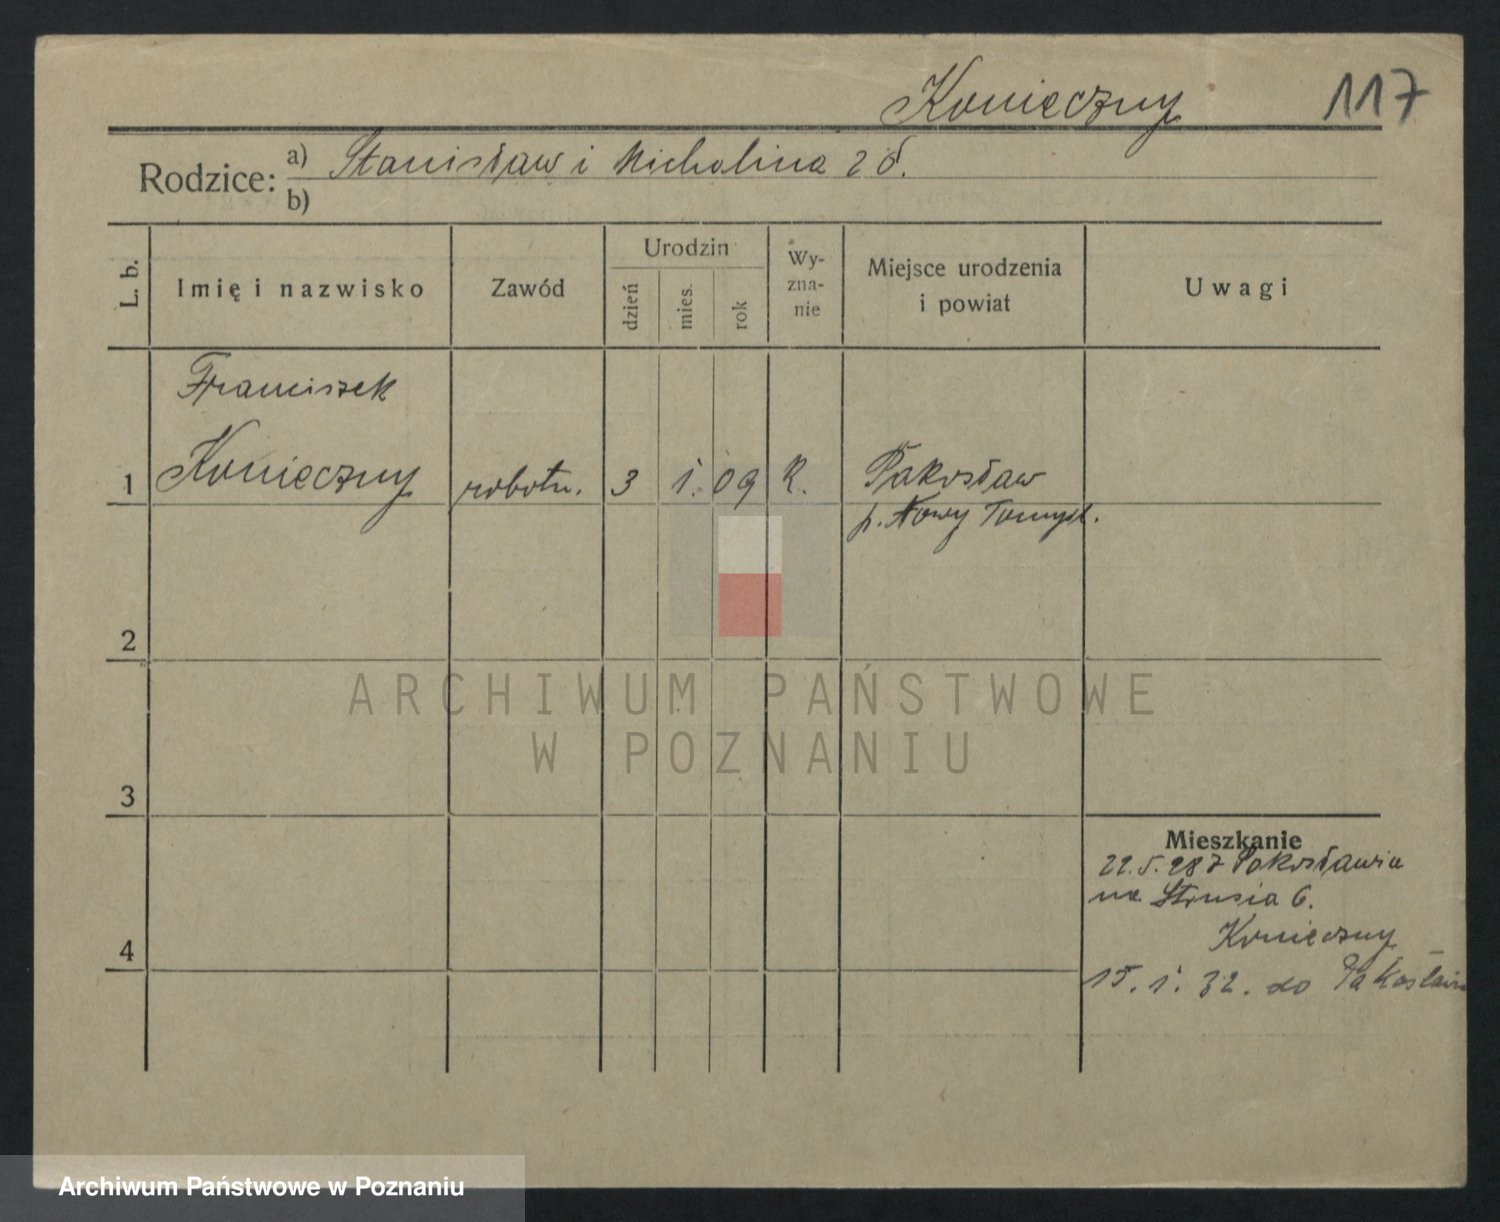 Konieczny 117
Rodzice: a) Stanisław i Michalina z d.
b)
L. b.
Imię i nazwisko
Zawód
Urodzin
dzień
mies.
rok
Wy-
zna-
nie
Miejsce urodzenia
i powiat
Uwagi
Franciszek
1 Konieczny robotn. 3 1. 09 R. Pakosław
p. Nowy Tomyśl.
2
ARCHIWUM PAŃSTWOWE
W POZNANIU
3
Mieszkanie
22.5.28 z Pakosławia
na Strusia 6.
Konieczny
4
15. 1. 32. do Pakosławia
Archiwum Państwowe w Poznaniu